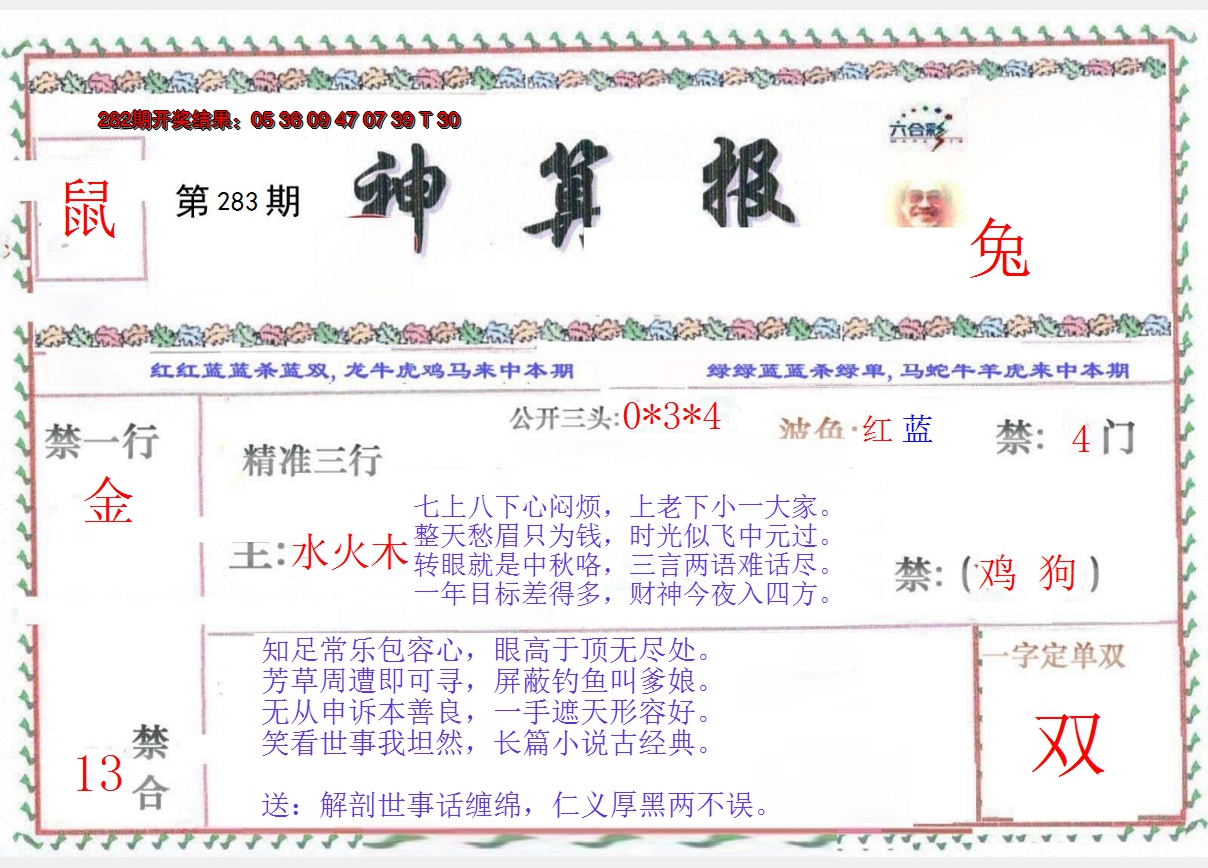 282期开奖结果：05 36 09 47 07 39 T 30
六合彩
鼠
第 283 期
神算报
兔
红红蓝蓝杀蓝双,龙牛虎鸡马来中本期
绿绿蓝蓝杀绿单,马蛇牛羊虎来中本期
禁一行
金
精准三行
公开三头:0*3*4
波色:红 蓝
禁: 4门
主:水火木
七上八下心闷烦，上老下小一大家。
整天愁眉只为钱，时光似飞中元过。
转眼就是中秋咯，三言两语难话尽。
一年目标差得多，财神今夜入四方。
禁:(鸡 狗)
知足常乐包容心，眼高于顶无尽处。
芳草周遭即可寻，屏蔽钓鱼叫爹娘。
无从申诉本善良，一手遮天形容好。
笑看世事我坦然，长篇小说古经典。
送：解剖世事话缠绵，仁义厚黑两不误。
13
禁合
一字定单双
双